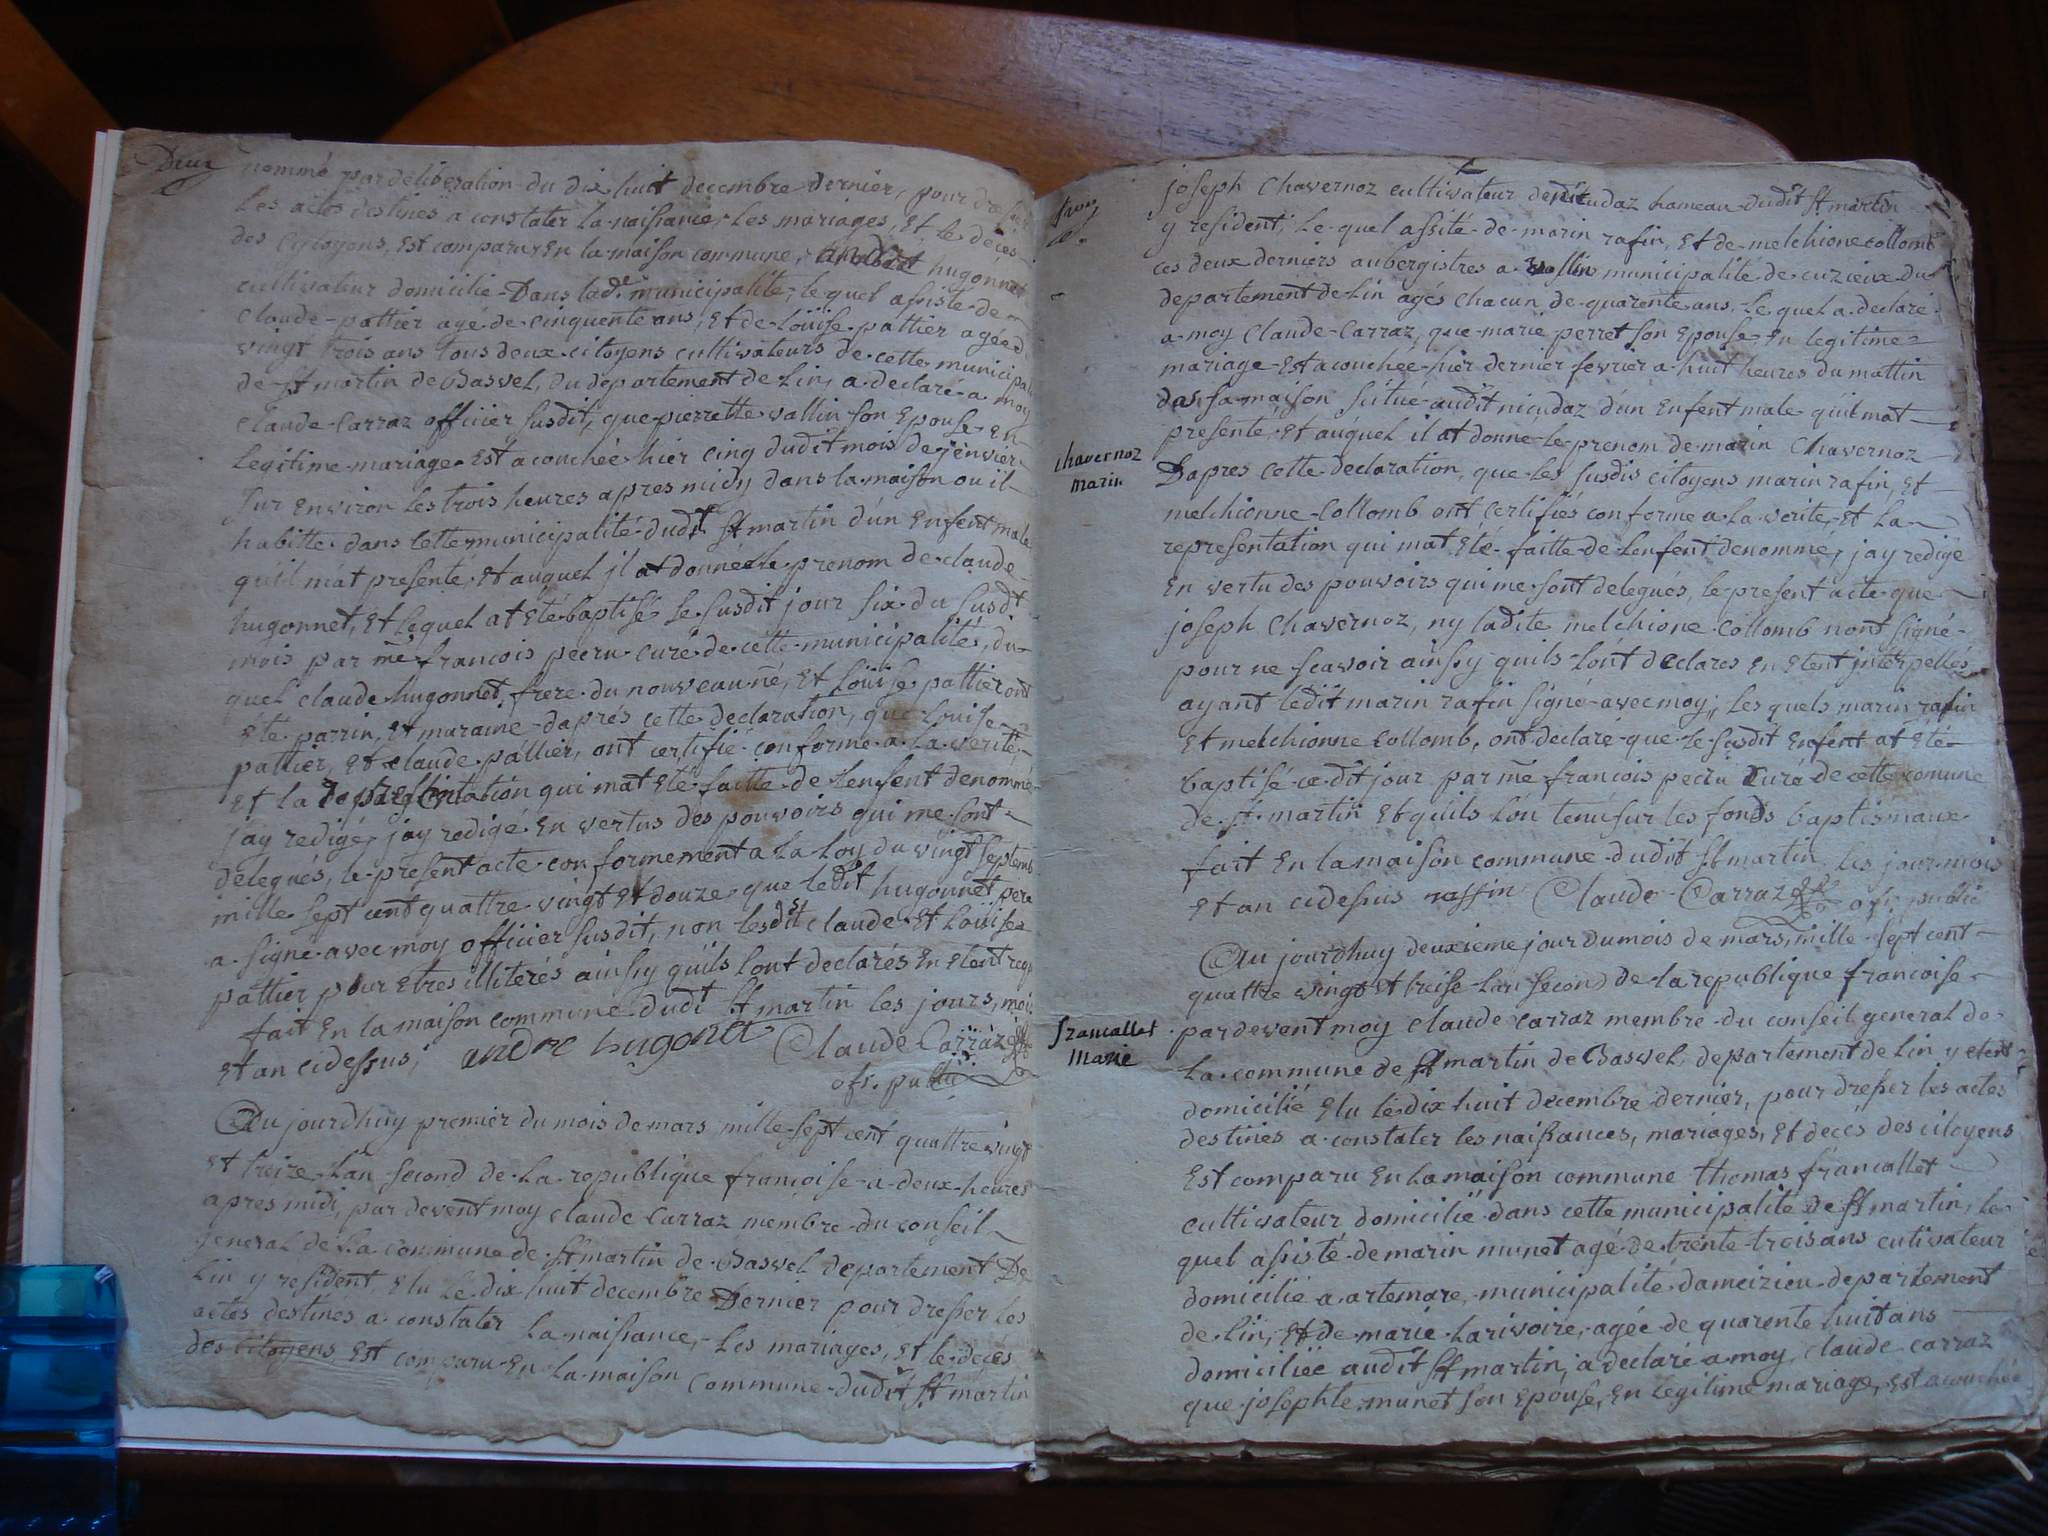 Deux
nommé par deliberation du dix huit decembre dernier, pour dresser
les actes destinés a constater la naissance, les mariages, et le déces
des citoyens, est comparu en la maison commune, hugonnet
cultivateur domicilié dans lad.e municipalité, le quel assisté de
claude pattier agé de cinquente ans, et de loüise pattier agée d
vingt trois ans tous deux citoyens cultivateurs de cette municipal
de st martin de Bavvel, du departement de lin, a declaré a moy
claude Carraz officier susdit, que pierrette vallin son epouse en
legitime mariage est acouchée hier cinq dudit mois de jenvier
sur environ les trois heures apres midy dans la maison ou il
habitte dans cette municipalité dudt st martin dun enfent male
qu'il mat presenté, et auquel jl at donnée le prenom de claude
hugonnet, et lequel at eté baptisé le susdit jour six du susdt
mois par me francois pecru curé de cette municipalité, du
quel claude hugonnet, frere du nouveau né, et loüise pattier ont
été parrin, et maraine daprés cette declaration, que louise
pattier, et claude pattier, ont certifié conforme a la verité
et la representation qui mat eté faitte de lenfent denommé
jay redigé, jay redigé en vertus des pouvoirs qui me sont
delegués, le present acte conformement a la loy du vingt septemb
mille sept cent quattre vingt et douze, que ledit hugonnet pere
a signé avec moy officier susdit, non lesdits claude et loüise
pattier pour etres illiterés ainsy quils lont declarés en etent requ
fait en la maison commune dudt st martin les jours, mois
et an cidessus, andre hugonet Claude Carraz
ofi. public
Au jourdhuy premier du mois de mars mille sept cent quattre vingt
et treize lan second de la republique françoise a deux heures
apres midi, par devent moy claude Carraz membre du conseil
general de la commune de st martin de Bavvel departement de
lin y resident, elu le dix huit decembre dernier pour dresser les
actes destinés a constater la naissance, les mariages, et le deces
des citoyens est comparu en la maison commune dudit st martin
trois
joseph Chavernoz cultivateur de nicudaz hameau dudit st martin
y resident, le quel assité de marin rafin, et de melchione collomb
ces deux derniers aubergistres a municipalité de cuzieux du
departement de lin agés chacun de quarente ans, le quel a declaré
a moy claude Carraz, que marie perret son epouse en legitime
mariage est acouchée hier dernier fevrier a huit heures du mattin
das sa maison scitué audit nicudaz d'un enfent male quil mat
presenté, et auquel il at donné le prenom de marin Chavernoz
chavernoz
marin
Dapres cette declaration, que les susdis citoyens marin rafin, et
melchionne Collomb ont certifiés conforme a la verite, et la
representation qui mat été faitte de lenfent denommé, jay redigé
en vertu des pouvoirs qui me sont delegués, le present acte que
joseph Chavernoz, ny ladite melchione Collomb nont signé
pour ne scavoir ainsy quils lont declares en etent interpellés
ayant ledit marin rafin signé avec moy, les quels marin rafin
et melchionne Collomb, ont declaré que le susdit enfent at été
baptisé ce dit jour par me francois pecru Curé de cette comune
de st martin et quils lon tenu sur les fonds baptismaux
fait en la maison commune dudit st martin les jour mois
et an cidessus raffin Claude Carraz ofi. public
Au jourdhuy deuxieme jour du mois de mars, mille sept cent
quattre vingt et treise lan second de la republique francoise
francallet
Marie
par devent moy claude carraz membre du conseil general de
la commune de st martin de Bavvel, departement de lin y etent
domicilié elu le dix huit decembre dernier, pour dresser les actes
destinés a constater les naissances, mariages, et decés des citoyens
est comparu en la maison commune thomas francallet
cultivateur domicilié dans cette municipalite de st martin, le
quel assisté de marin munet agé de trente trois ans cutivateur
domicilié a artemare, municipalité dameizieu departement
de lin, et de marie larivoire, agée de quarente huit ans
domiciliée audit st martin, a declaré a moy, claude carraz
que josephte munet son epouse, en legitime mariage, est acouchée